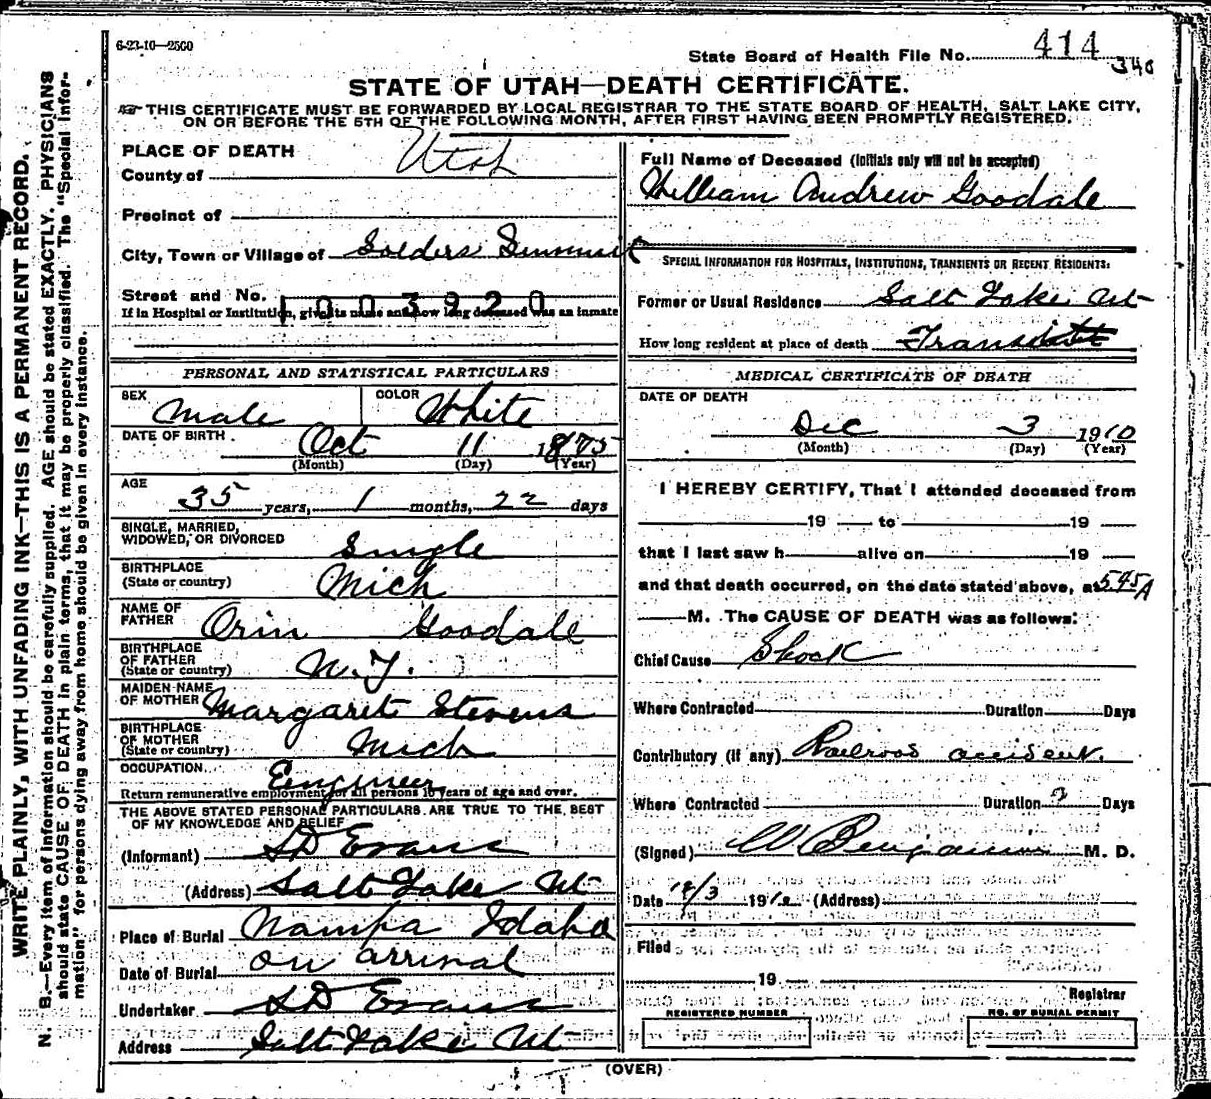 6-23-10—2500
State Board of Health File No. 414
340
STATE OF UTAH—DEATH CERTIFICATE.
THIS CERTIFICATE MUST BE FORWARDED BY LOCAL REGISTRAR TO THE STATE BOARD OF HEALTH, SALT LAKE CITY,
ON OR BEFORE THE 5TH OF THE FOLLOWING MONTH, AFTER FIRST HAVING BEEN PROMPTLY REGISTERED.
WRITE PLAINLY, WITH UNFADING INK—THIS IS A PERMANENT RECORD.
N. B.—Every item of information should be carefully supplied. AGE should be stated EXACTLY. PHYSICIANS
should state CAUSE OF DEATH in plain terms, that it may be properly classified. The "Special Infor-
mation" for persons dying away from home should be given in every instance.
PLACE OF DEATH
County of Utah
Precinct of
City, Town or Village of Solders Summit
Street and No.
1003920
If in Hospital or Institution, give its name and how long deceased was an inmate
PERSONAL AND STATISTICAL PARTICULARS
SEX Male COLOR White
DATE OF BIRTH Oct 11 1875
(Month) (Day) (Year)
AGE
35 years, 1 months, 22 days
SINGLE, MARRIED,
WIDOWED, OR DIVORCED Single
BIRTHPLACE
(State or country) Mich
NAME OF
FATHER Orin Goodale
BIRTHPLACE
OF FATHER
(State or country) N.Y.
MAIDEN NAME
OF MOTHER Margaret Stevens
BIRTHPLACE
OF MOTHER
(State or country) Mich
OCCUPATION Eengineer
Return remunerative employment for all persons 10 years of age and over.
THE ABOVE STATED PERSONAL PARTICULARS ARE TRUE TO THE BEST
OF MY KNOWLEDGE AND BELIEF
(Informant) SD Evans
(Address) Salt Lake Ut
Place of Burial Nampa Idaho
Date of Burial on arrival
Undertaker SD Evans
Address Salt Lake Ut
Full Name of Deceased (Initials only will not be accepted)
William Andrew Goodale
SPECIAL INFORMATION FOR HOSPITALS, INSTITUTIONS, TRANSIENTS OR RECENT RESIDENTS:
Former or Usual Residence Salt Lake Ut
How long resident at place of death
MEDICAL CERTIFICATE OF DEATH
DATE OF DEATH
Dec 3 1910
(Month) (Day) (Year)
I HEREBY CERTIFY, That I attended deceased from
19 to 19
that I last saw h alive on 19
and that death occurred, on the date stated above, at 545 A
M. The CAUSE OF DEATH was as follows:
Chief Cause Shock
Where Contracted Duration Days
Contributory (if any) Railroad accident.
Where Contracted Duration Days
(Signed) W Benjamin M. D.
Date 12/3 1910 (Address)
Filed
19
Registrar
REGISTERED NUMBER
NO. OF BURIAL PERMIT
(OVER)